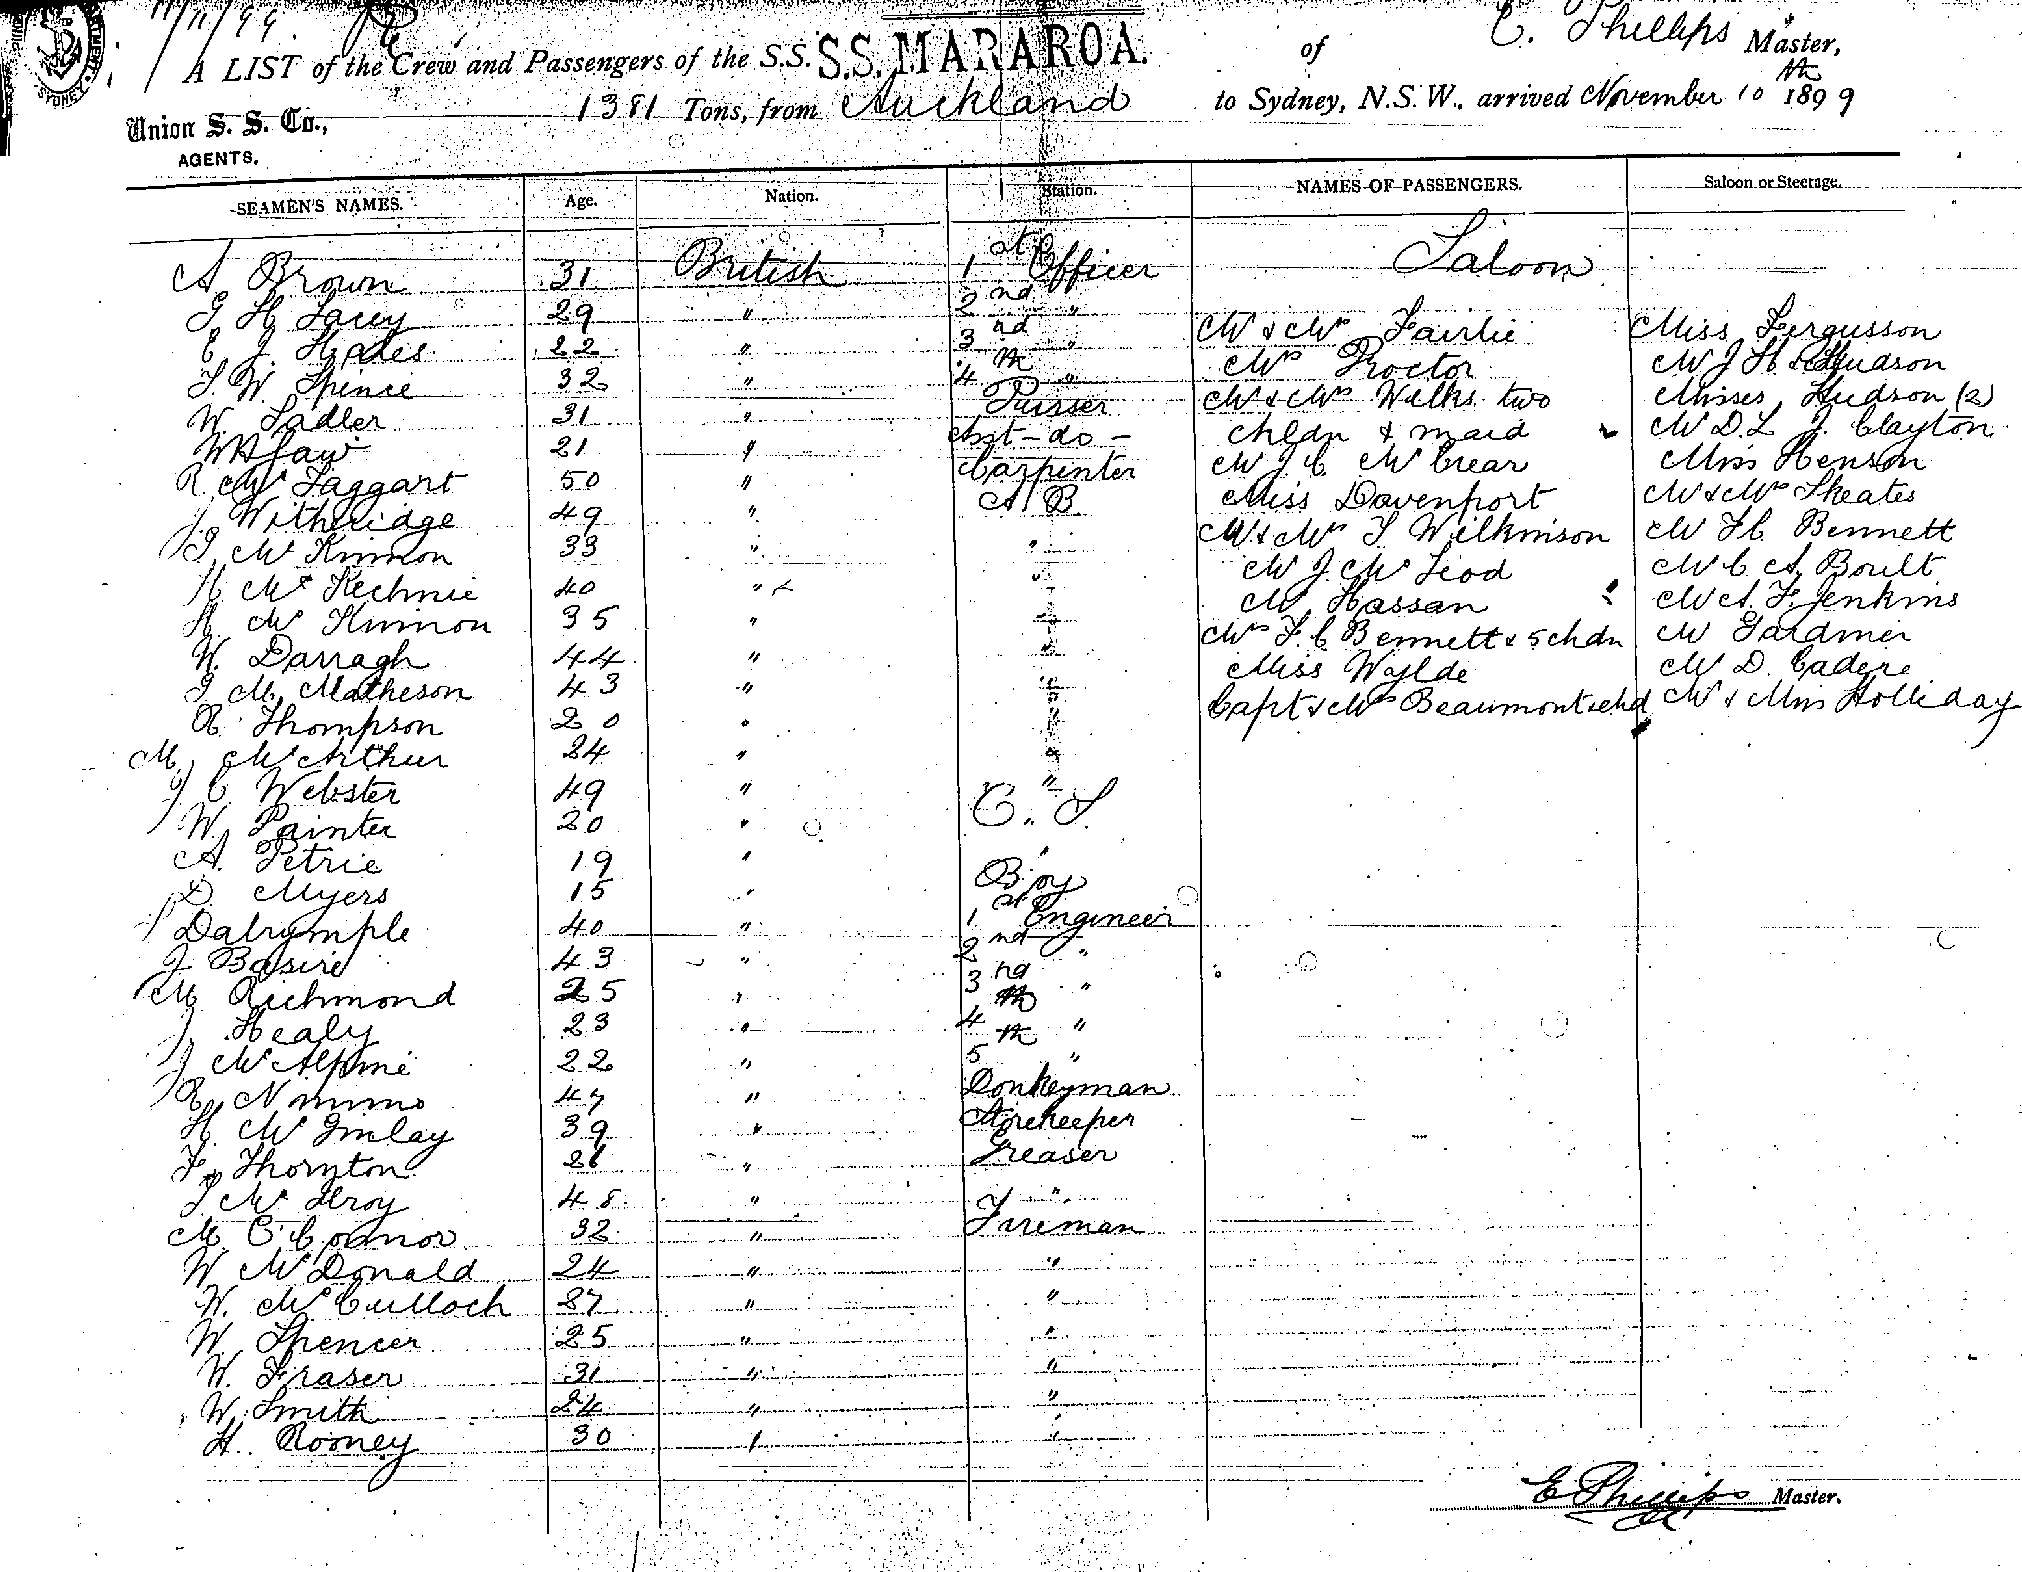 11/11/99
SYDNEY
E. Phillips Master,
A LIST of the Crew and Passengers of the S.S. S.S. MARAROA. of
1381 Tons, from Auckland to Sydney, N.S.W., arrived November 10th 1899
Union S. S. Co.,
AGENTS.
SEAMEN'S NAMES. Age. Nation. Station. NAMES OF PASSENGERS. Saloon or Steerage.
A Brown 31 British 1st Officer
G H Lacey 29 " 2nd "
E J Hales 22 " 3rd "
T. W. Spence 32 " 4th "
W. Sadler 31 " Purser
W H Law 21 " Asst - do -
R McTaggart 50 " Carpenter
J. Witheridge 49 " A B
J McKinnon 33 " "
A McKechnie 40 " "
H McKinnon 35 " "
W. Darragh 44 " "
J M Matheson 43 " "
R. Thompson 20 " "
M. McArthur 24 " "
J C Webster 49 " "
W. Painter 20 " O. S.
A. Petrie 19 " "
D. Myers 15 " Boy
J Dalrymple 40 " 1st Engineer
J Basire 43 " 2nd "
M Richmond 25 " 3rd "
J Healy 23 " 4th "
J McAlpine 22 " 5th "
R Nimmo 47 " Donkeyman
H. McImlay 39 " Storekeeper
F. Thornton 26 " Greaser
J McIlroy 48 " "
M O'Connor 32 " Fireman
W McDonald 24 " "
W. McCulloch 27 " "
W Spencer 25 " "
W. Fraser 31 " "
W. Smith 24 " "
H. Rooney 30 " "
Saloon
Mr & Mrs Fairlie
Mrs Proctor
Mr & Mrs Wilks two
chldn & maid
Mr J C McCrear
Miss Davenport
Mr & Mrs T Wilkinson
Mr J McLeod
Mr Hassan
Mrs F. C Bennett & 5 chdn
Miss Wylde
Capt & Mrs Beaumont & chd
Miss Fergusson
Mr J H Hudson
Misses Hudson (2)
Mr D. L J. Clayton
Miss Henson
Mr & Mrs Skeates
Mr F C. Bennett
Mr C A. Boult
Mr A. F. Jenkins
Mr Gardiner
Mr D. Cadere
Mr & Miss Holliday
E Phillips Master.